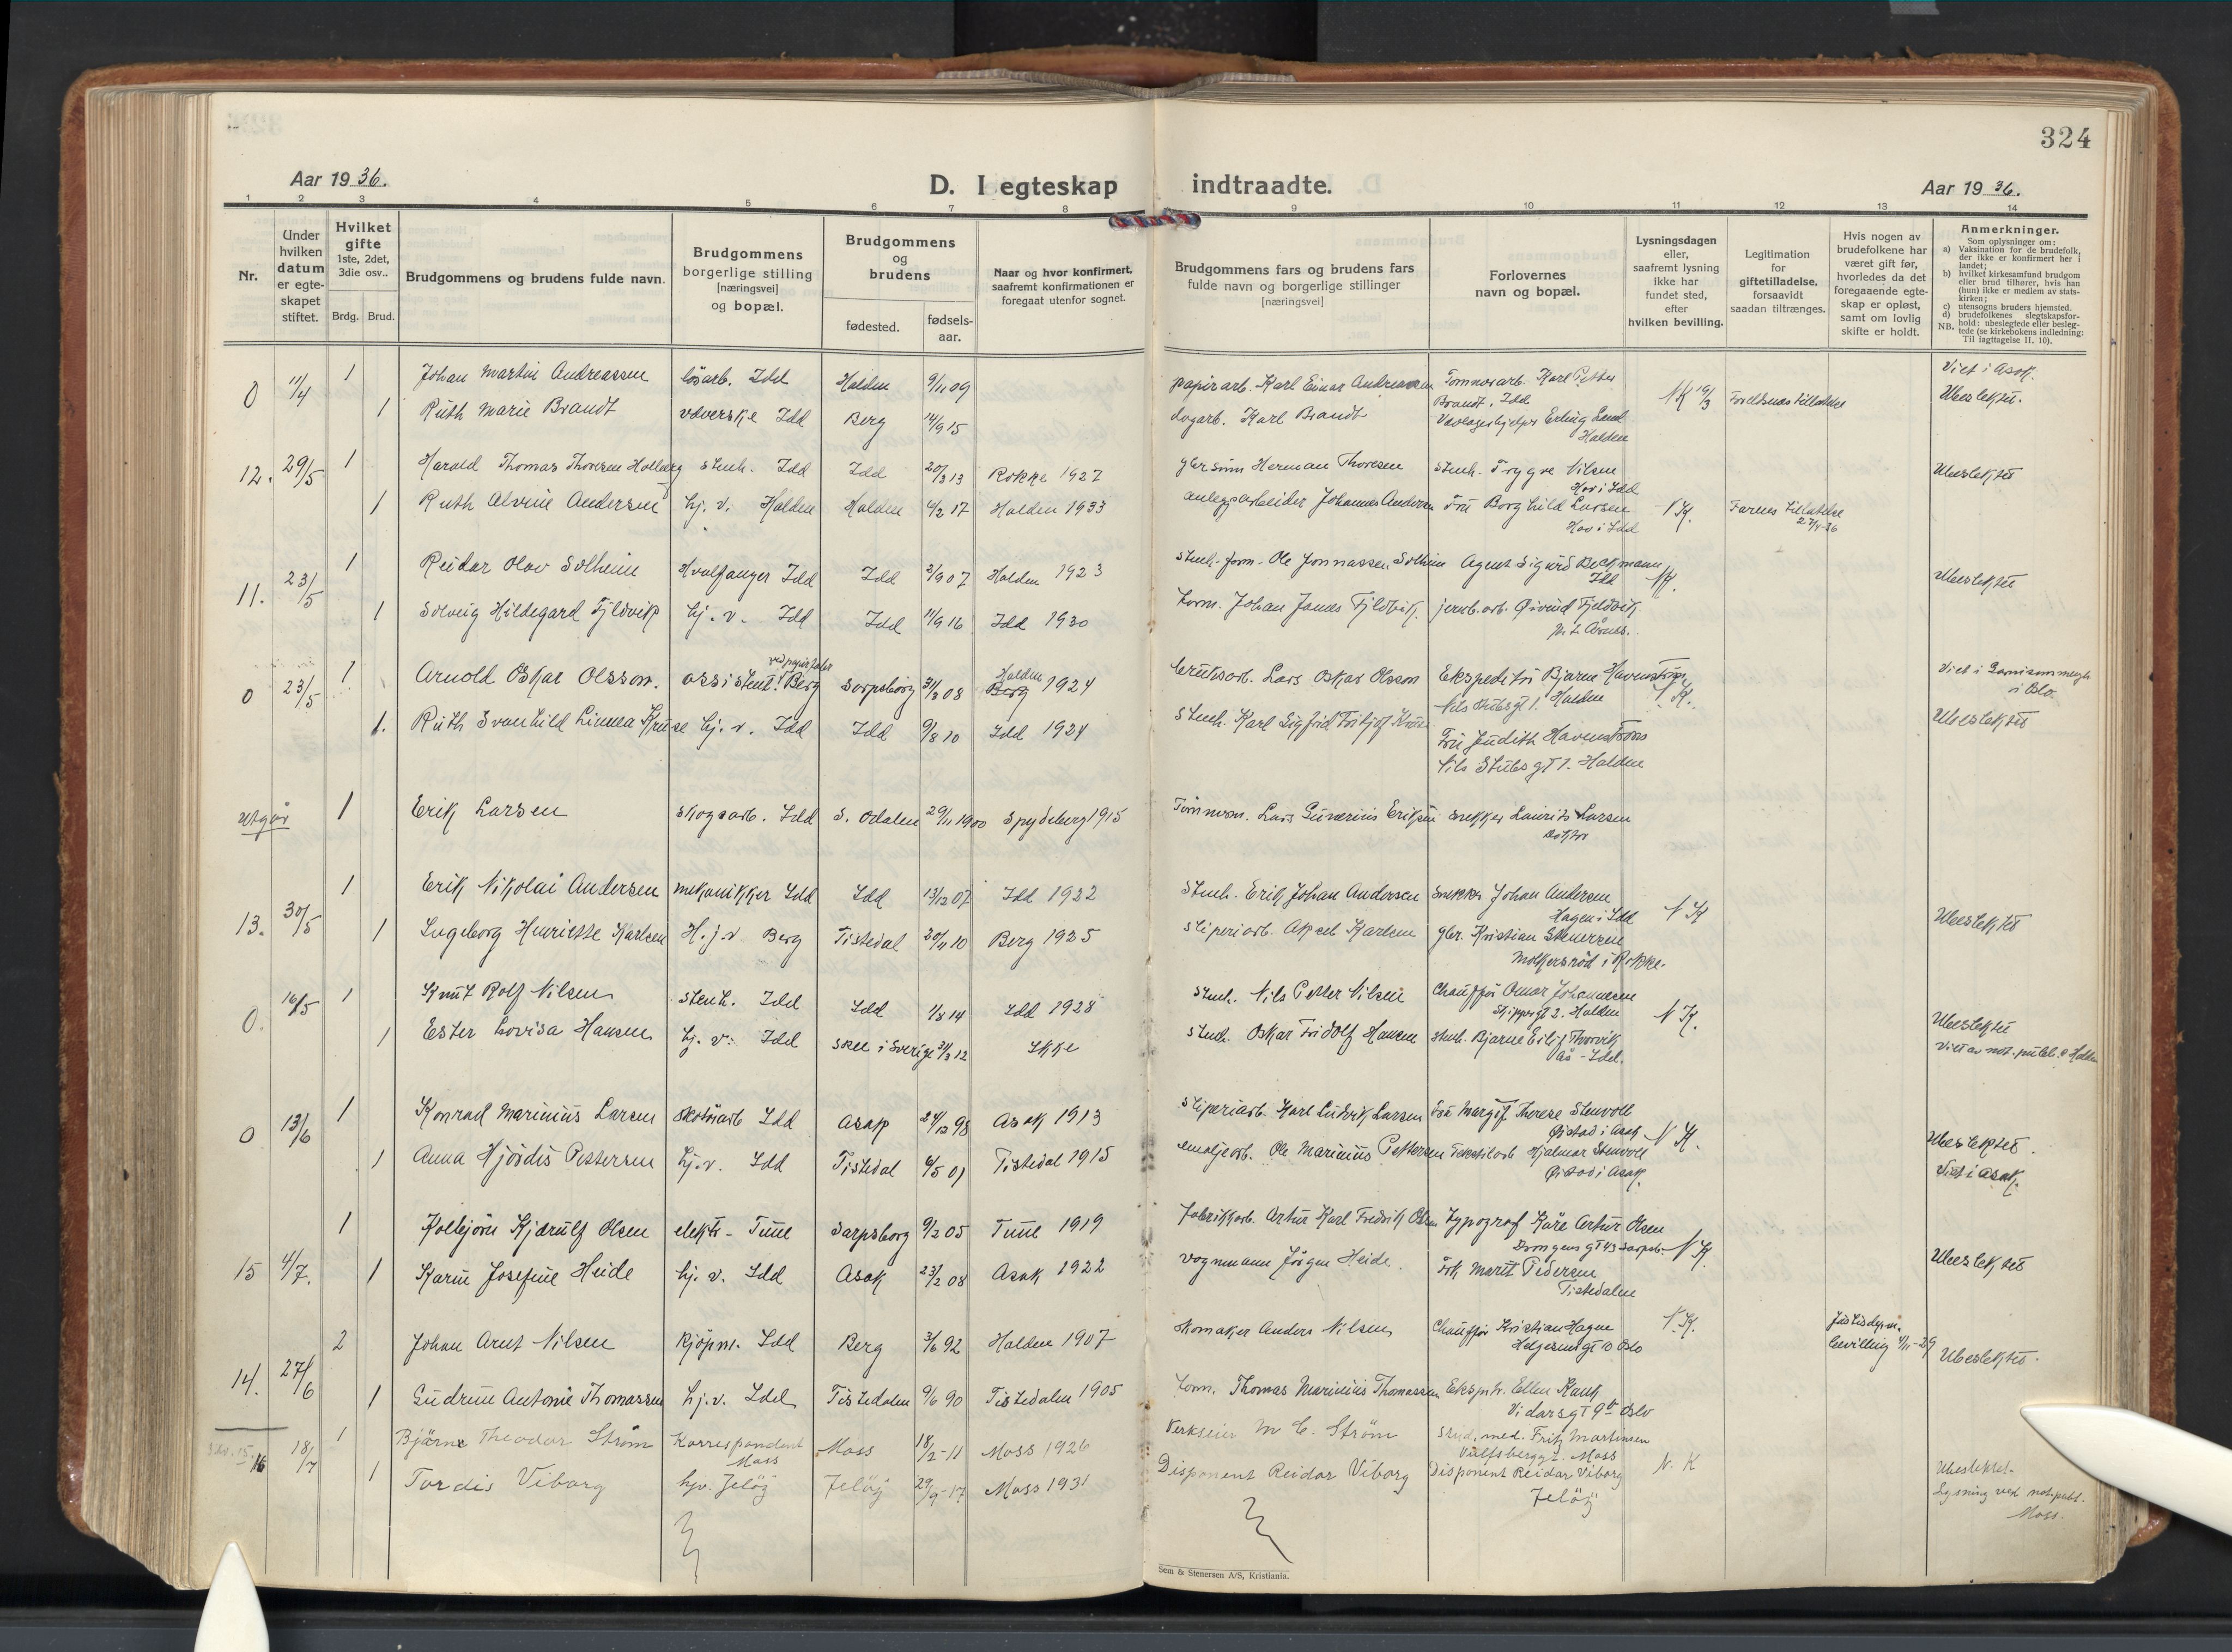 324
Aar 1936.
D. I egteskap indtraadte.
Aar 1936.
1 2 3 4 5 6 7 8 9 10 11 12 13 14
Nr.
Under hvilken datum er egte-skapet stiftet.
Hvilket gifte 1ste, 2det, 3die osv..
Brdg. Brud.
Brudgommens og brudens fulde navn.
Brudgommens borgerlige stilling [næringsvei] og bopæl.
Brudgommens og brudens
fødested. fødsels-aar.
Naar og hvor konfirmert, saafremt konfirmationen er foregaat utenfor sognet.
Brudgommens fars og brudens fars fulde navn og borgerlige stillinger [næringsvei]
Forlovernes navn og bopæl.
Lysningsdagen eller, saafremt lysning ikke har fundet sted, efter hvilken bevilling.
Legitimation for giftetilladelse, forsaavidt saadan tiltrænges.
Hvis nogen av brudefolkene har været gift før, hvorledes da det foregaaende egte-skap er opløst, samt om lovlig skifte er holdt.
Anmerkninger.
Som oplysninger om:
a) Vaksination for de brudefolk, der ikke er konfirmert her i landet;
b) hvilket kirkesamfund brudgom eller brud tilhører, hvis han (hun) ikke er medlem av stats-kirken;
c) utensogns bruders hjemsted.
d) brudefolkenes slegtskapsfor-hold: ubeslegtede eller besleg-tede (se kirkebokens indledning:
NB. Til Iagttagelse II. 10).
0 11/4 1 Johan Martin Andreassen løsarb. Idd Halden 9/11 09 papirarb. Karl Einar Andreassen Tømmerarb. Karl Petter Brandt, Idd NK 19/3 Foreldrenes tillatelse Viet i Asak.
1 Ruth Marie Brandt væverske Idd Berg 14/9 15 dagarb. Karl Brandt Erling Lund Halden Ubeslektet.
12. 29/5 1 Harald Thomas Thoresen Holberg stenh. Idd Idd 20/3 13 Rokke 1927 Herman Thoresen stenh. Trygve Nilsen Hov i Idd Ubeslektet
1 Ruth Alvine Andersen hj. v. Halden Halden 4/2 17 Halden 1933 anlegsarbeider Johannes Andersen Fru Borghild Larsen Hov i Idd NK. Farens tillatelse 27/4-36
11. 23/5 1 Reidar Olav Solheim Hvalfanger Idd Idd 3/9 07 Halden 1923 stenh. form. Ole Jonnassen Solheim Agent Sigurd Beckmann Idd NK. Ubeslektet
1 Solveig Hildegard Fjeldvik hj. v. Idd Idd 11/9 16 Idd 1930 Johan Jonas Fjeldvik jernb.arb. Øivind Fjeldvik p.t. Årnes.
0 23/5 1 Arnold Oskar Olsson. assistent ved papirfabr. Berg Sarpsborg 31/3 08 Halden 1924 bruksarb. Lars Oskar Olsson Ekspeditør Bjarne Havenstrøm Nils Stubsgt 1. Halden NK.
1. Ruth Svanhild Linnea Kruse hj. v. Idd Idd 9/8 10 Idd 1924 Stenh. Karl Sigfrid Fritjof Kruse Fru Judith Havenstrøm Nils Stubsgt 1. Halden Ubeslektet
Utgår 1 Erik Larsen skogsarb. Idd S. Odalen 29/11 1900 Spydeberg 1915 Tømmerm. Lars Gunerius Eriksen snekker Laurits Larsen
13. 30/5 1 Erik Nikolai Andersen mekanikker Idd Idd 13/12 07 Idd 1922 Stenh. Erik Johan Andersen Snekker Johan Andersen Hagen i Idd NK Ubeslektet
1 Ingeborg Henriette Karlsen H.j.v. Berg Tistedal 20/11 10 Berg 1925 sliperiarb. Aksel Karlsen gbr. Kristian Stenersen i Rokke.
0. 16/5 1 Knut Rolf Nilsen stenh. Idd Idd 1/8 14 Idd 1928 stenh. Nils Petter Nilsen Chauffør Omar Johannesen Skippergt 2. Halden NK.
1 Ester Lovisa Hansen hj. v. Idd Skee i Sverige 31/3 12 Ikke stenh. Oskar Fridolf Hansen stenh. Bjarne Eilif Thorvik Ås - Idd. Ubeslektet
Viet av not. publ. i Halden
0 13/6 1 Konrad Marinius Larsen skotøiarb Idd Asak 24/12 98 Asak 1913 sliperiarb. Karl Ludvik Larsen Fru Margit Therese Stenvoll Ørstad i Asak NK.
1 Anna Hjørdis Pettersen hj.v. Idd Tistedal 6/5 01 Tistedal 1915 emaljearb. Ole Marinius Pettersen Tekstilarb Hjalmar Stenvoll Ørstad i Asak. Ubeslektet.
Viet i Asak.
15 4/7. 1 Kolbjørn Kjærulf Olsen elektr. Tune Sarpsborg 9/2 05 Tune 1919 fabrikkarb. Artur Karl Fredrik Olsen Typograf Kåre Artur Olsen Dronningensgt 43 Sarpsb. NK.
1 Karin Josefine Heide hj. v. Idd Asak 23/2 08 Asak 1922 vognmann Jørgen Heide. Frk Marit Pedersen Tistedalen Ubeslektet
14. 27/6 2 Johan Arnt Nilsen kjøpm. Idd Berg 3/6 92 Halden 1907 Skomaker Anders Nilsen Chauffør Kristian Hagen Helgesensgt 10 Oslo NK. Justisdep.m. bevilling 4/11-29
1 Gudrun Antonie Thomassen hj.v. Idd Tistedalen 9/6 90 Tistedalen 1905 form. Thomas Marinius Thomassen Ekspetr. Ellen Vidarsgt 9b Oslo Ubeslektet.
16 18/7 1 Bjarne Theodor Strøm Korrespondent Moss Moss 18/2-11 Moss 1926 Verkseier M C. Strøm Stud. med. Fritz Martinsen Moss N. K
1 Tordis Viborg hjv. Jeløy Jeløy 29/9-17 Moss 1931 Disponent Reidar Viborg Disponent Reidar Viborg Jeløy Ubeslektet.
Lysning ved not.publ. Moss.
Sem & Stenersen A/S, Kristiania.